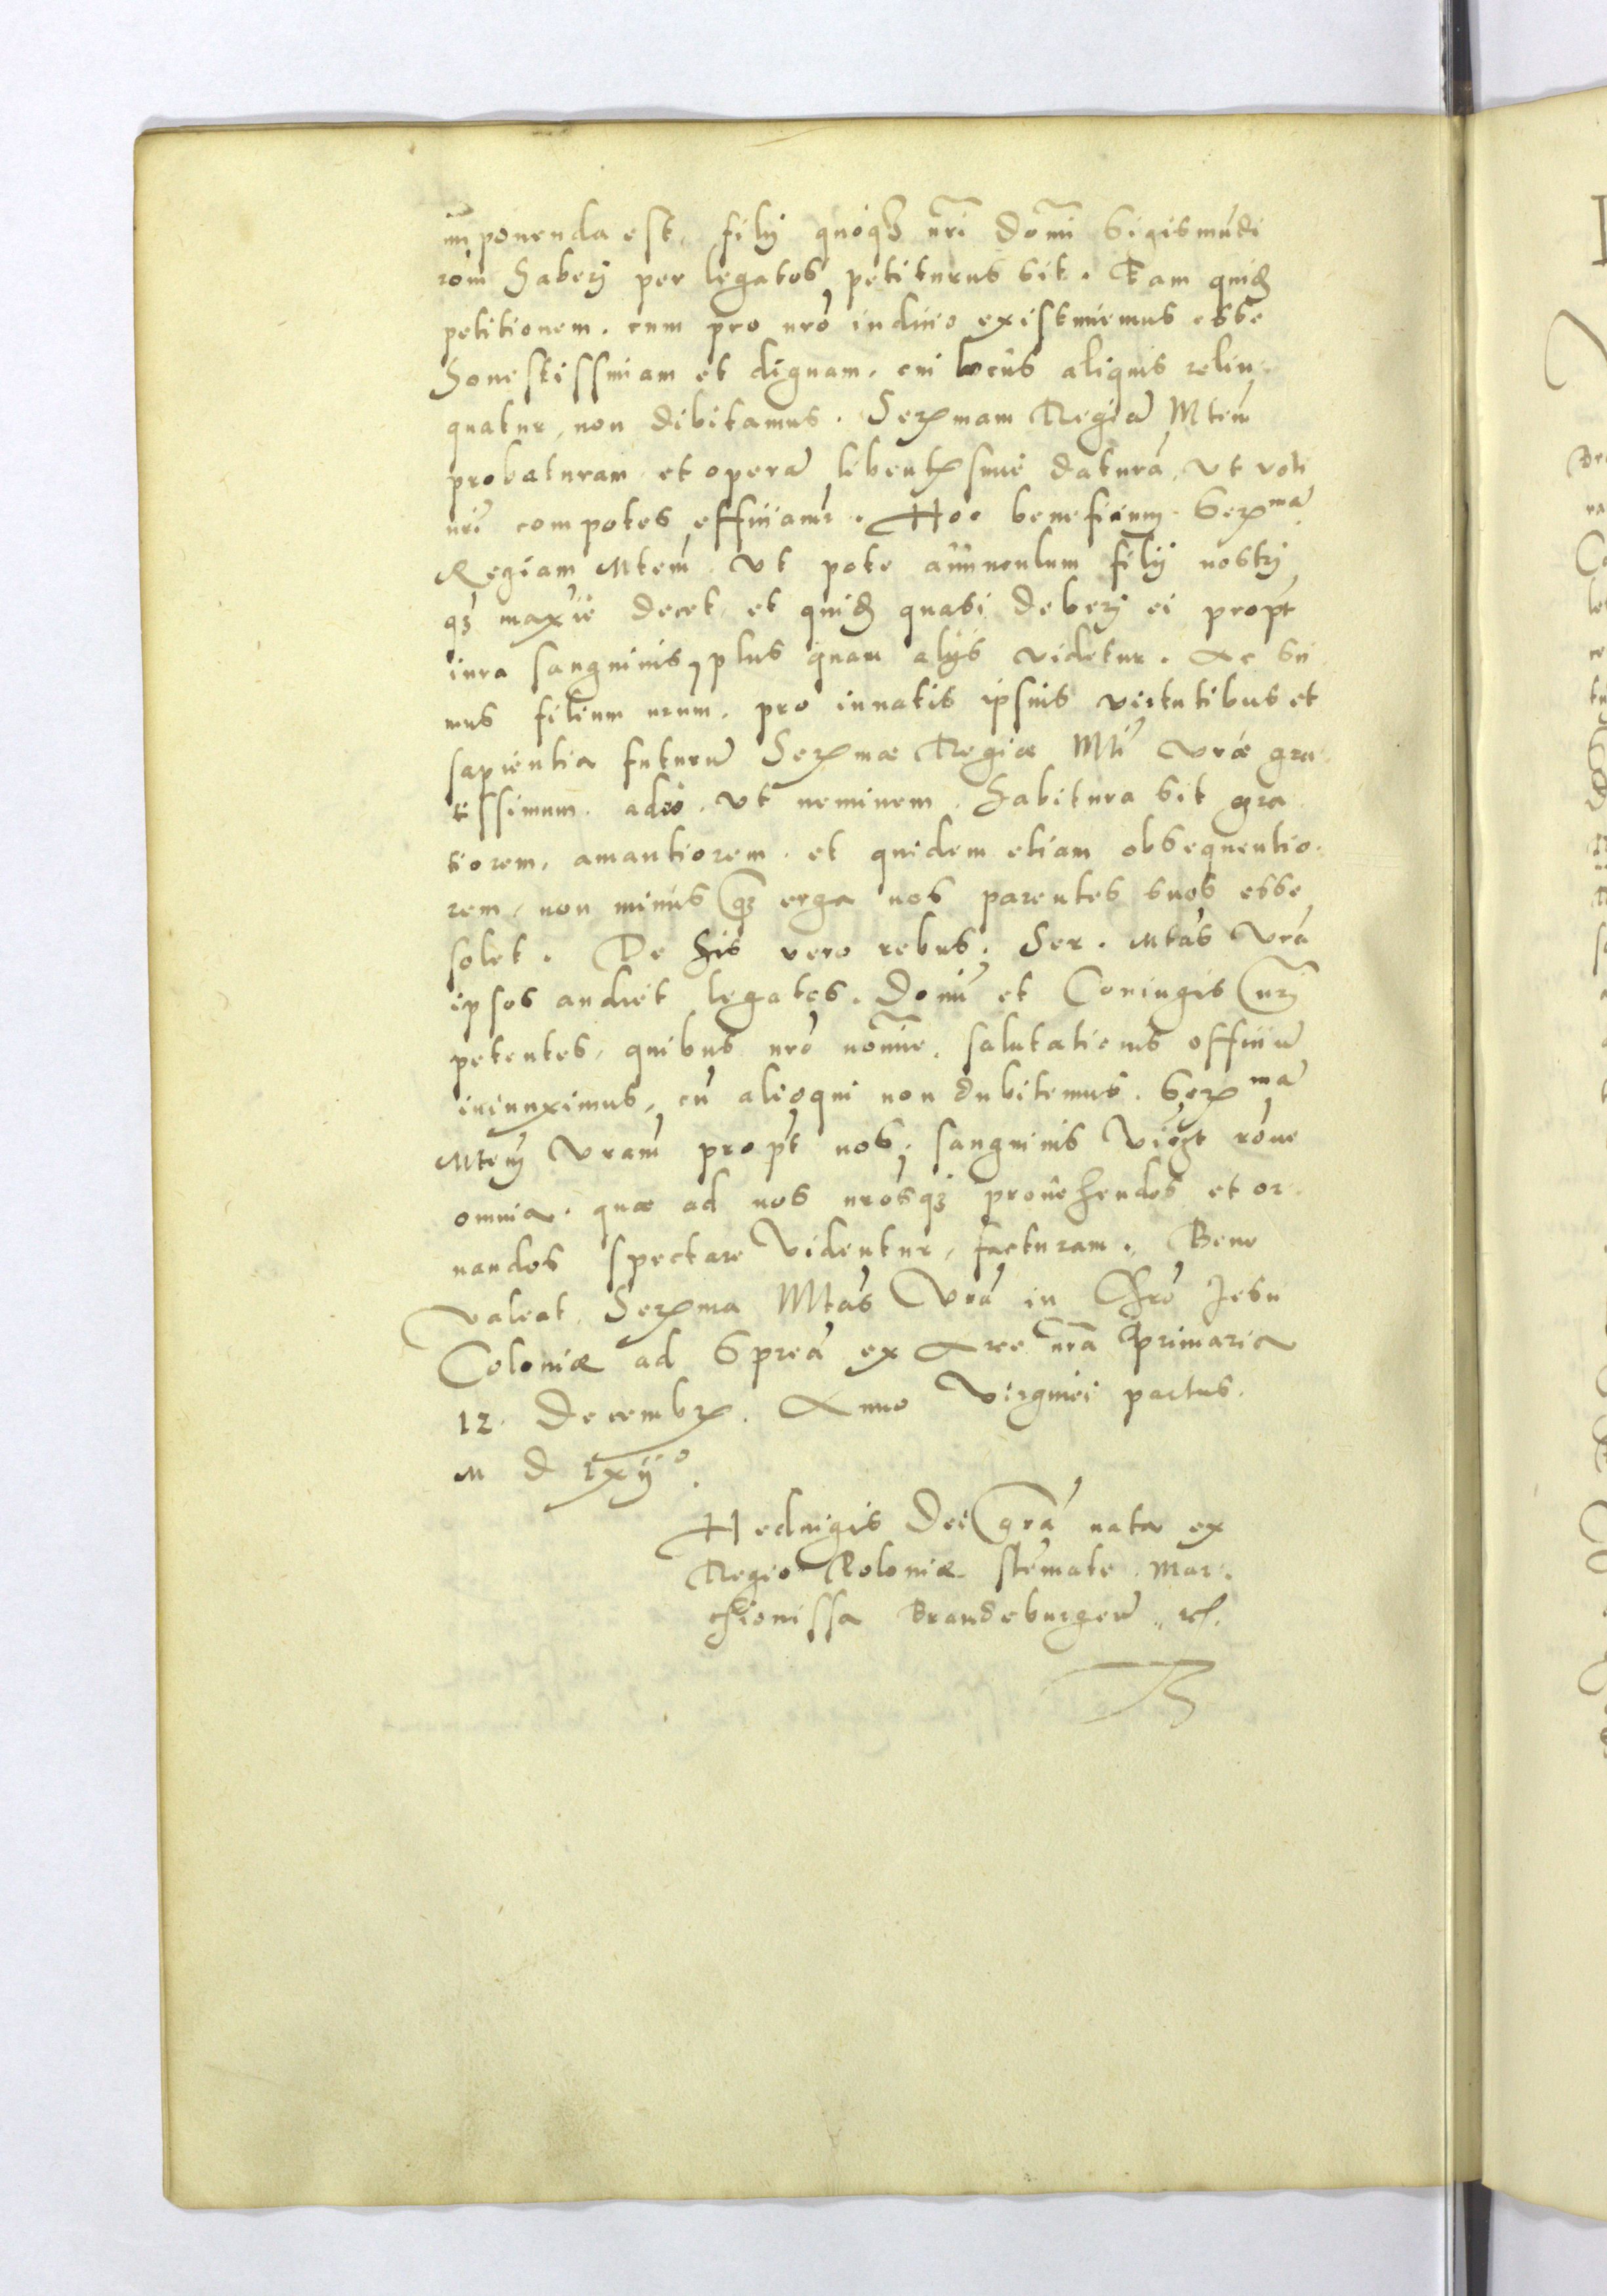 imponenda est, filij quoq3 nrĩ domĩ Sigismũdi
rõm haberj per legatos petiturus sit. Eam quid3
petitionem. cum pro nrõ iuditio existimemus esse
honestissimam et dignam. cui locus aliquis relin-
quatur, non dibitamus. Serxmam Regiã Mtem̃
probaturam et operã libentxsime daturã, vt voti
nrĩ compotes efficiamr. Hoc beneficium Serxmã
Regiam Mtem̃ vt pote auunculum filij nostrj
q3 maxie decet, et quid3 quasi deberj ei propt
iura sanguinis, plus quam alijs videtur. Ac sci
mus filium nrum. pro innatis ipsius virtutibus et
sapientia futurũ Serxmæ Regiæ Mti vræ gra-
tissimum. adeo. vt neminem. habitura sit gra
tiorem, amantiorem. et quidem etiam obsequentio-
rem, non minus q3 erga nos parentes suos esse
solet. De his vero rebus. Ser. Mtas vrã
ipsos audiet legatos. domĩ et Coniugis nrj
petentes, quibus nrõ nomĩe. salutationis officiũ
iniunximus, cũ alioqui non dubitemus. Serxmã
Mtem̃ vram propt nos, sanguinis rõne
omnia. quæ ad nos nrosq3 prouehendos et or-
nandos spectare videntur, facturam. Bene
valeat Serxma Mtas Vrã in Chrõ Jesu
Coloniæ ad Spreã ex Arce nrã primaria
12. Decembrx. Anno virginei partus.
M D Lxijo.
Heduigis Dei grã nata ex
Regio Poloniæ stẽmate. Mar-
chionissa Brandeburgeñ. etc.